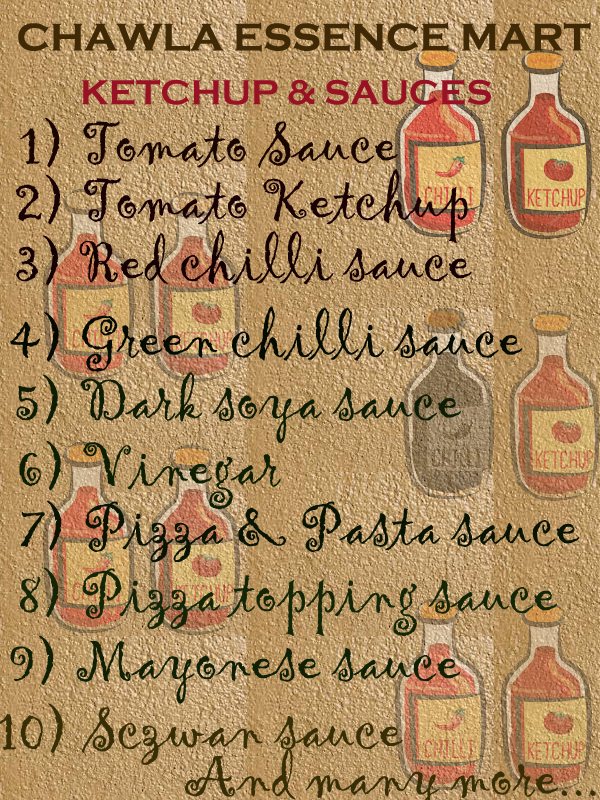 CHAWLA ESSENCE MART
KETCHUP & SAUCES
1) Tomato Sauce
2) Tomato Ketchup
3) Red chilli sauce
4) Green chilli sauce
5) Dark soya sauce
6) Vinegar
7) Pizza & Pasta sauce
8) Pizza topping sauce
9) Mayonese sauce
10) Sczwan sauce
And many more...
CHILLI KETCHUP
CHILLI KETCHUP
CHILLI KETCHUP
CHILLI KETCHUP
CHILLI KETCHUP